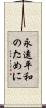 永遠平和
のために